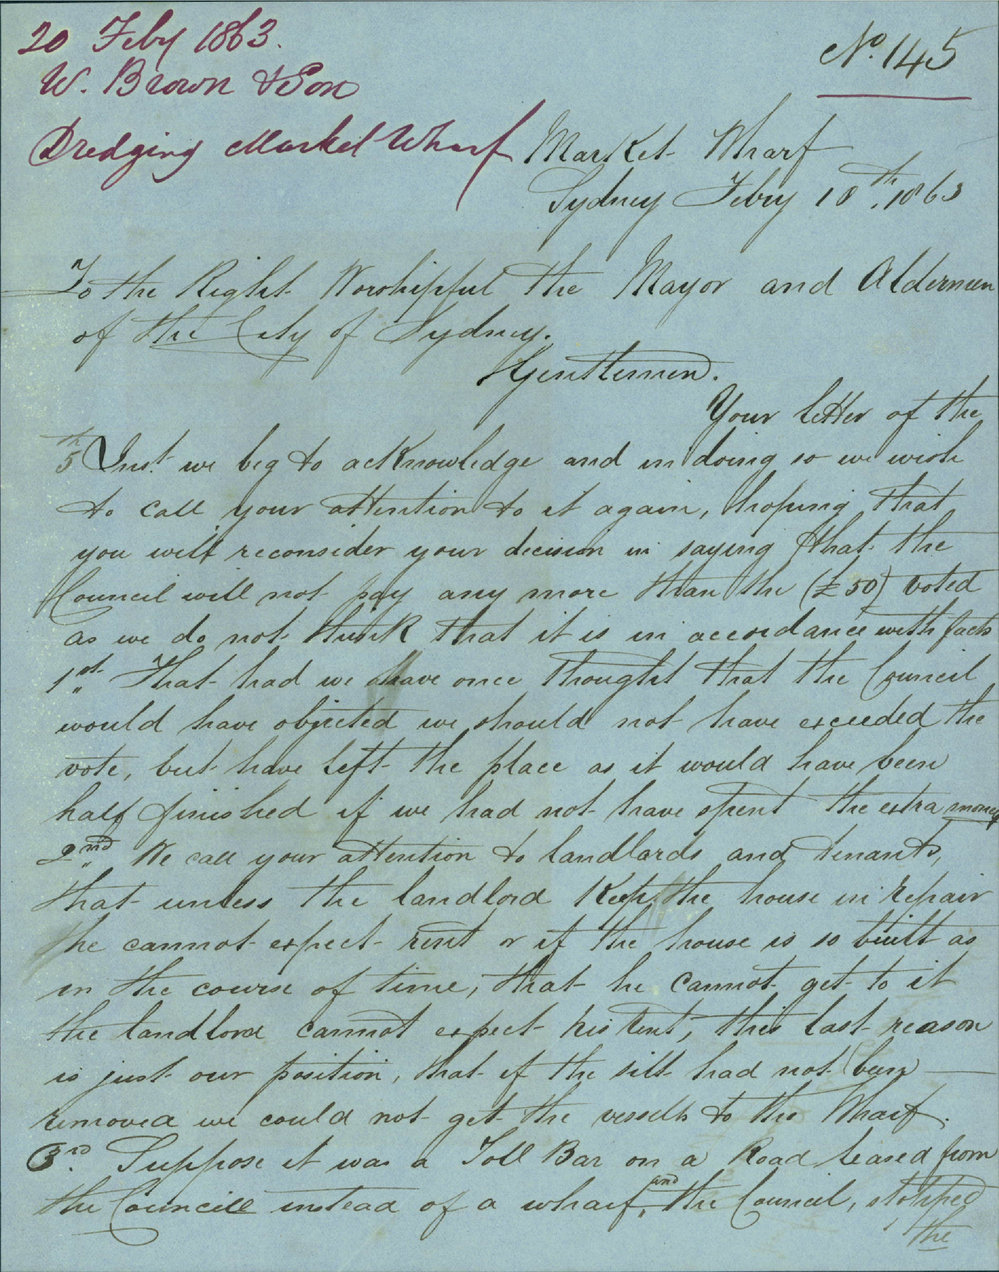 20 Feby 1863.
W. Brown & Son
Dredging Market Wharf
No. 145
Market Wharf
Sydney Febry 18th, 1863
To the Right Worshipful the Mayor and Aldermen
of the City of Sydney.
Gentlemen.
Your letter of the
5th Inst. we beg to acknowledge and in doing so we wish
to call your attention to it again, hoping that
you will reconsider your decision in saying that the
Council will not pay any more than the (£50) voted
as we do not think that it is in accordance with facts
1st. That had we have once thought that the Council
would have objected we should not have exceeded the
vote, but have left the place as it would have been
half finished if we had not have spent the extra money
2nd We call your attention to landlords and tenants,
that unless the landlord Keep the house in repair
he cannot expect rent or if the house is so built as
in the course of time, that he cannot get to it
the landlord cannot expect his rent, this last reason
is just our position, that if the silt had not been
removed we could not get the vessells to the Wharf.
3rd. Suppose it was a Toll Bar on a Road leased from
the Council instead of a wharf, and the Council, stopped
the